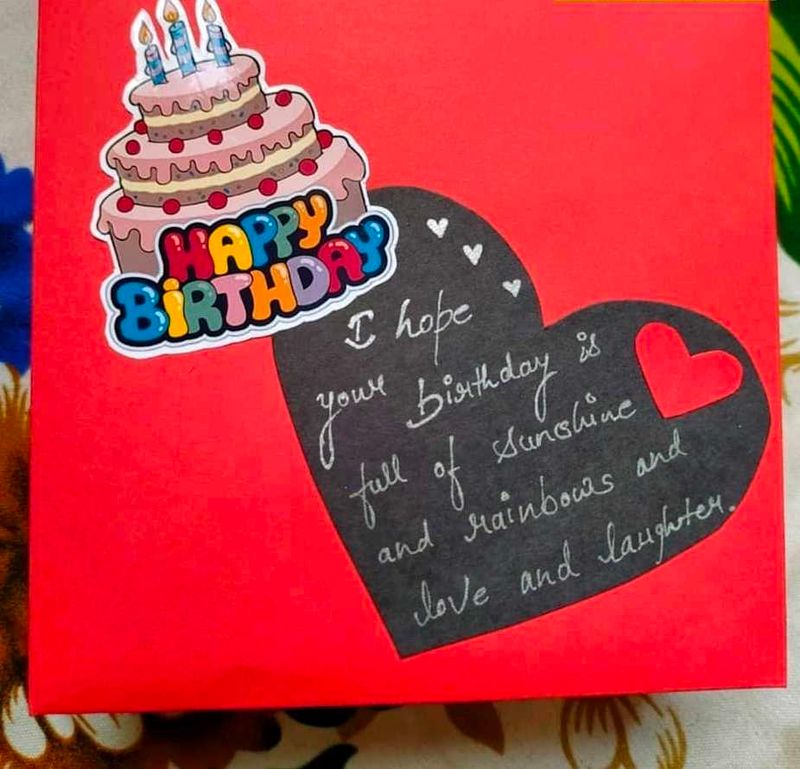 HAPPY
BIRTHDAY
I hope
your birthday is
full of sunshine
and rainbows and
love and laughter.